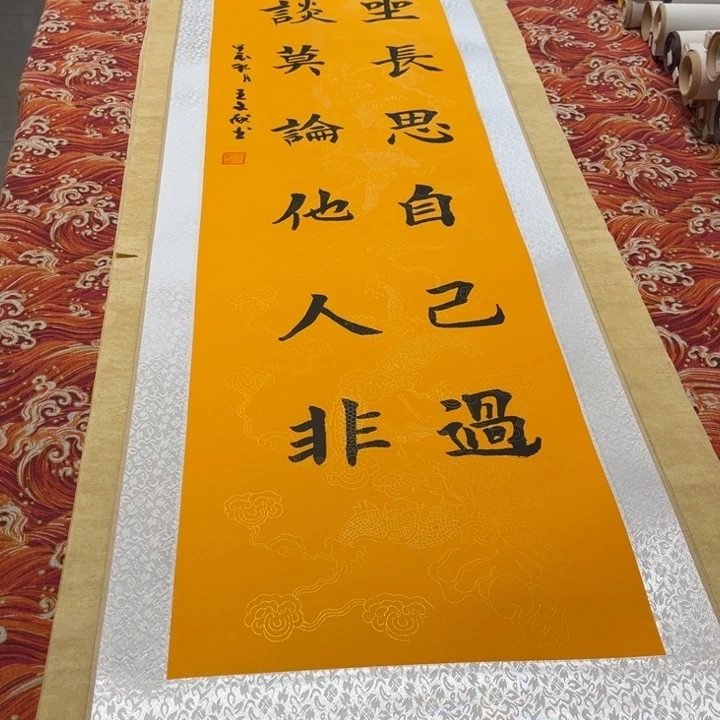 坐長思自己過
談莫論他人非
秋月王文書